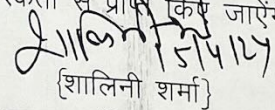 से प्राप्त किए जाएंगे
शालिनी 15/4/24
{शालिनी शर्मा}